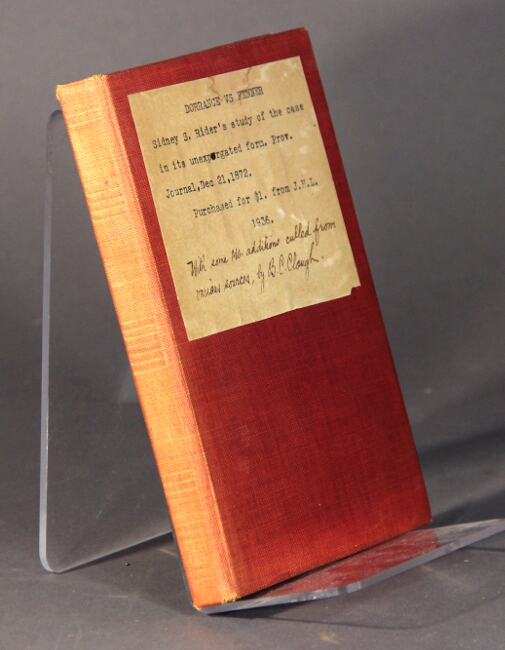 DORRANCE VS FENNER
Sidney S. Rider's study of the case
in its unexpurgated form. Prov.
Journal,Dec 21,1872.
Purchased for $1. from J.H.L.
1936.
With some Ms. additions culled from
various sources, by B.C. Clough.